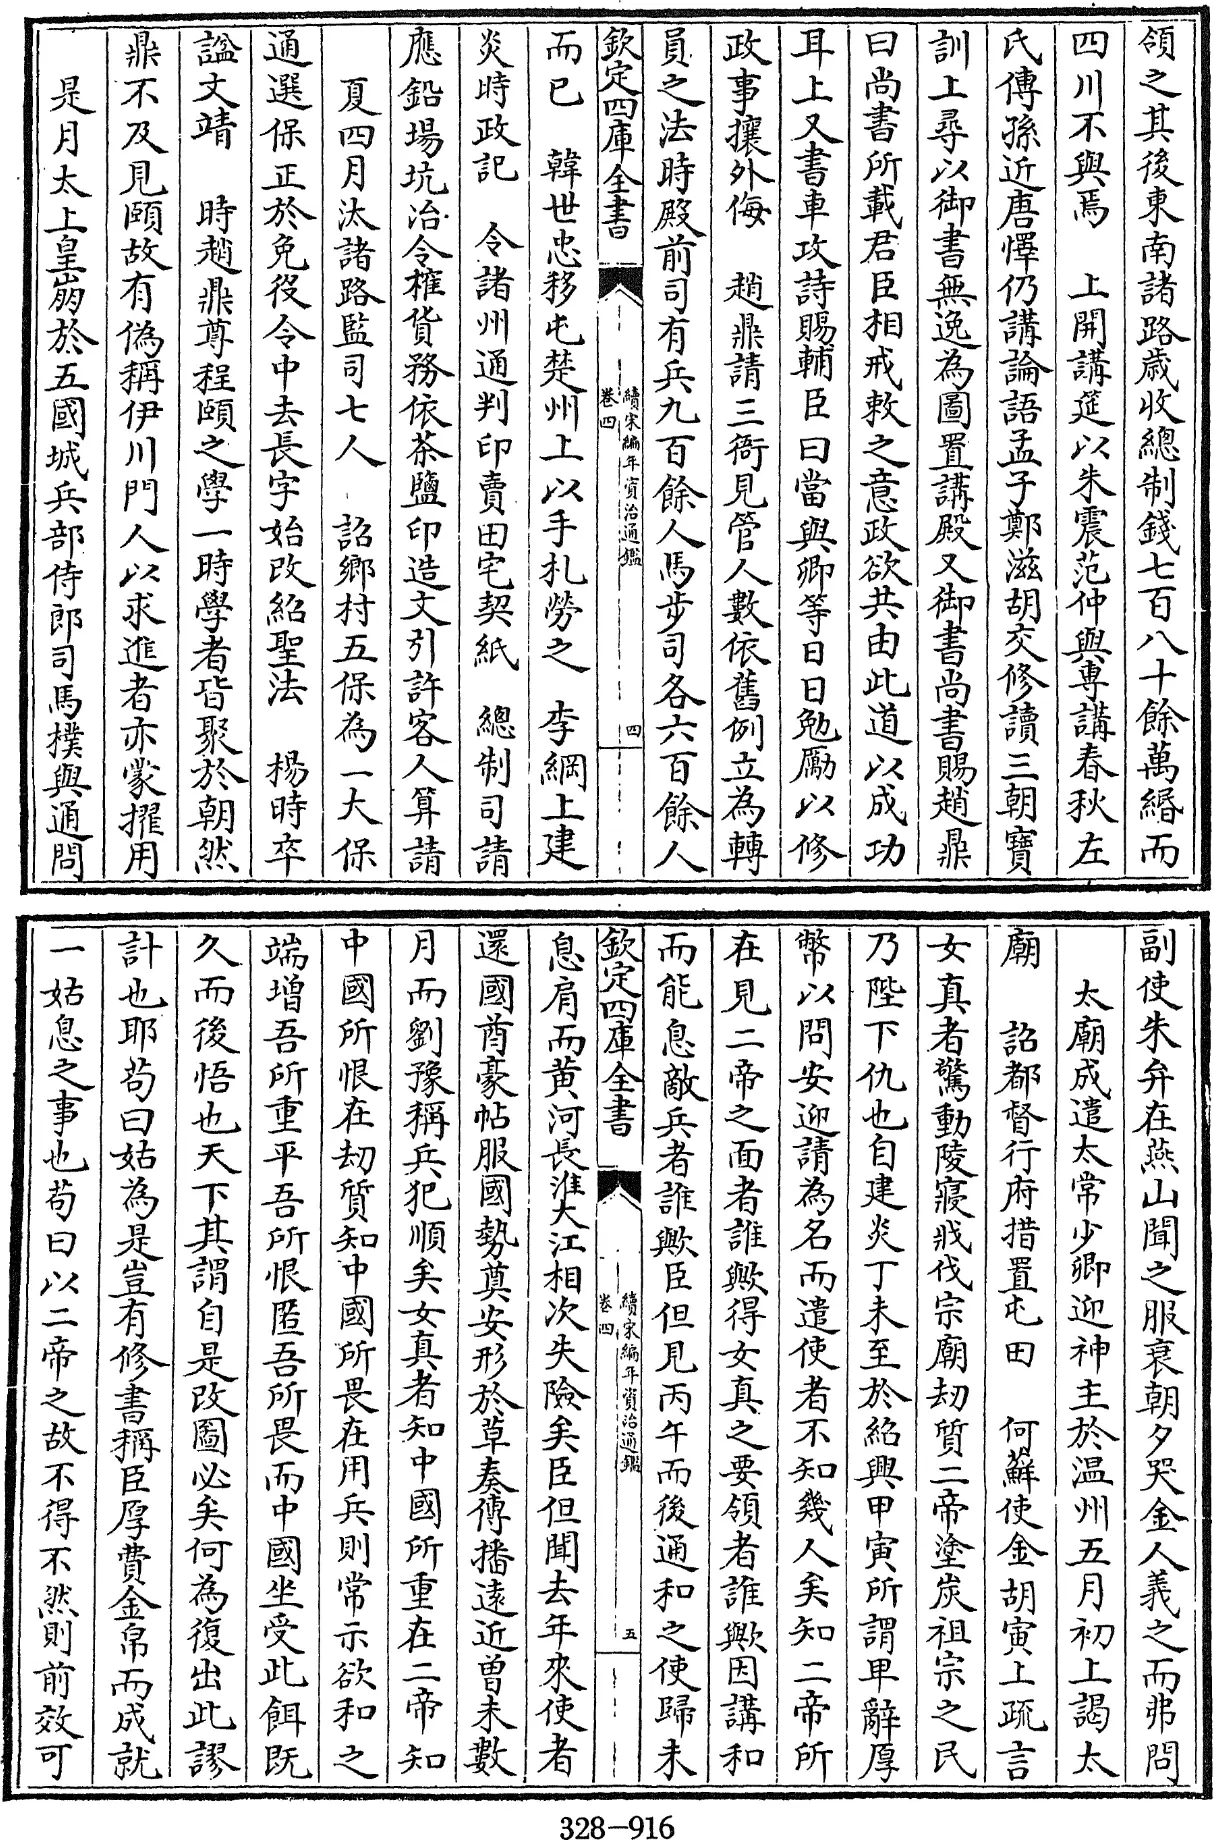 領之其後東南諸路歲收總制錢七百八十餘萬緡而
四川不與焉　上開講筵以朱震范仲與專講春秋左
氏傳孫近唐懌仍講論語孟子鄭滋胡交修讀三朝寶
訓上尋以御書無逸為圖置講殿又御書尚書賜趙鼎
曰尚書所載君臣相戒敕之意政欲共由此道以成功
耳上又書車攻詩賜輔臣曰當與卿等日日勉勵以修
政事攘外侮　趙鼎請三衙見管人數依舊例立為轉
員之法時殿前司有兵九百餘人馬步司各六百餘人
欽定四庫全書
續宋編年資治通鑑
卷四
四
而已　韓世忠移屯楚州上以手札勞之　李綱上建
炎時政記　令諸州通判印賣田宅契紙　總制司請
應鉛場坑冶令榷貨務依茶鹽印造文引許客人算請
夏四月汰諸路監司七人　詔鄉村五保為一大保
通選保正於免役令中去長字始改紹聖法　楊時卒
諡文靖　時趙鼎尊程頤之學一時學者皆聚於朝然
鼎不及見頤故有偽稱伊川門人以求進者亦蒙擢用
是月太上皇崩於五國城兵部侍郎司馬樸與通問
副使朱弁在燕山聞之服衰朝夕哭金人義之而弗問
太廟成遣太常少卿迎神主於温州五月初上謁太
廟　詔都督行府措置屯田　何蘚使金胡寅上疏言
女真者驚動陵寢戕伐宗廟刼質二帝塗炭祖宗之民
乃陛下仇也自建炎丁未至於紹興甲寅所謂卑辭厚
幣以問安迎請為名而遣使者不知幾人矣知二帝所
在見二帝之面者誰歟得女真之要領者誰歟因講和
而能息敵兵者誰歟臣但見丙午而後通和之使歸未
欽定四庫全書
續宋編年資治通鑑
卷四
五
息肩而黄河長淮大江相次失險矣臣但聞去年來使者
還國酋豪帖服國勢奠安形於草奏傳播遠近曽未數
月而劉豫稱兵犯順矣女真者知中國所重在二帝知
中國所恨在刼質知中國所畏在用兵則常示欲和之
端増吾所重平吾所恨匿吾所畏而中國坐受此餌既
久而後悟也天下其謂自是改圖必矣何為復出此謬
計也耶茍曰姑為是豈有修書稱臣厚費金帛而成就
一姑息之事也茍曰以二帝之故不得不然則前效可
328-916